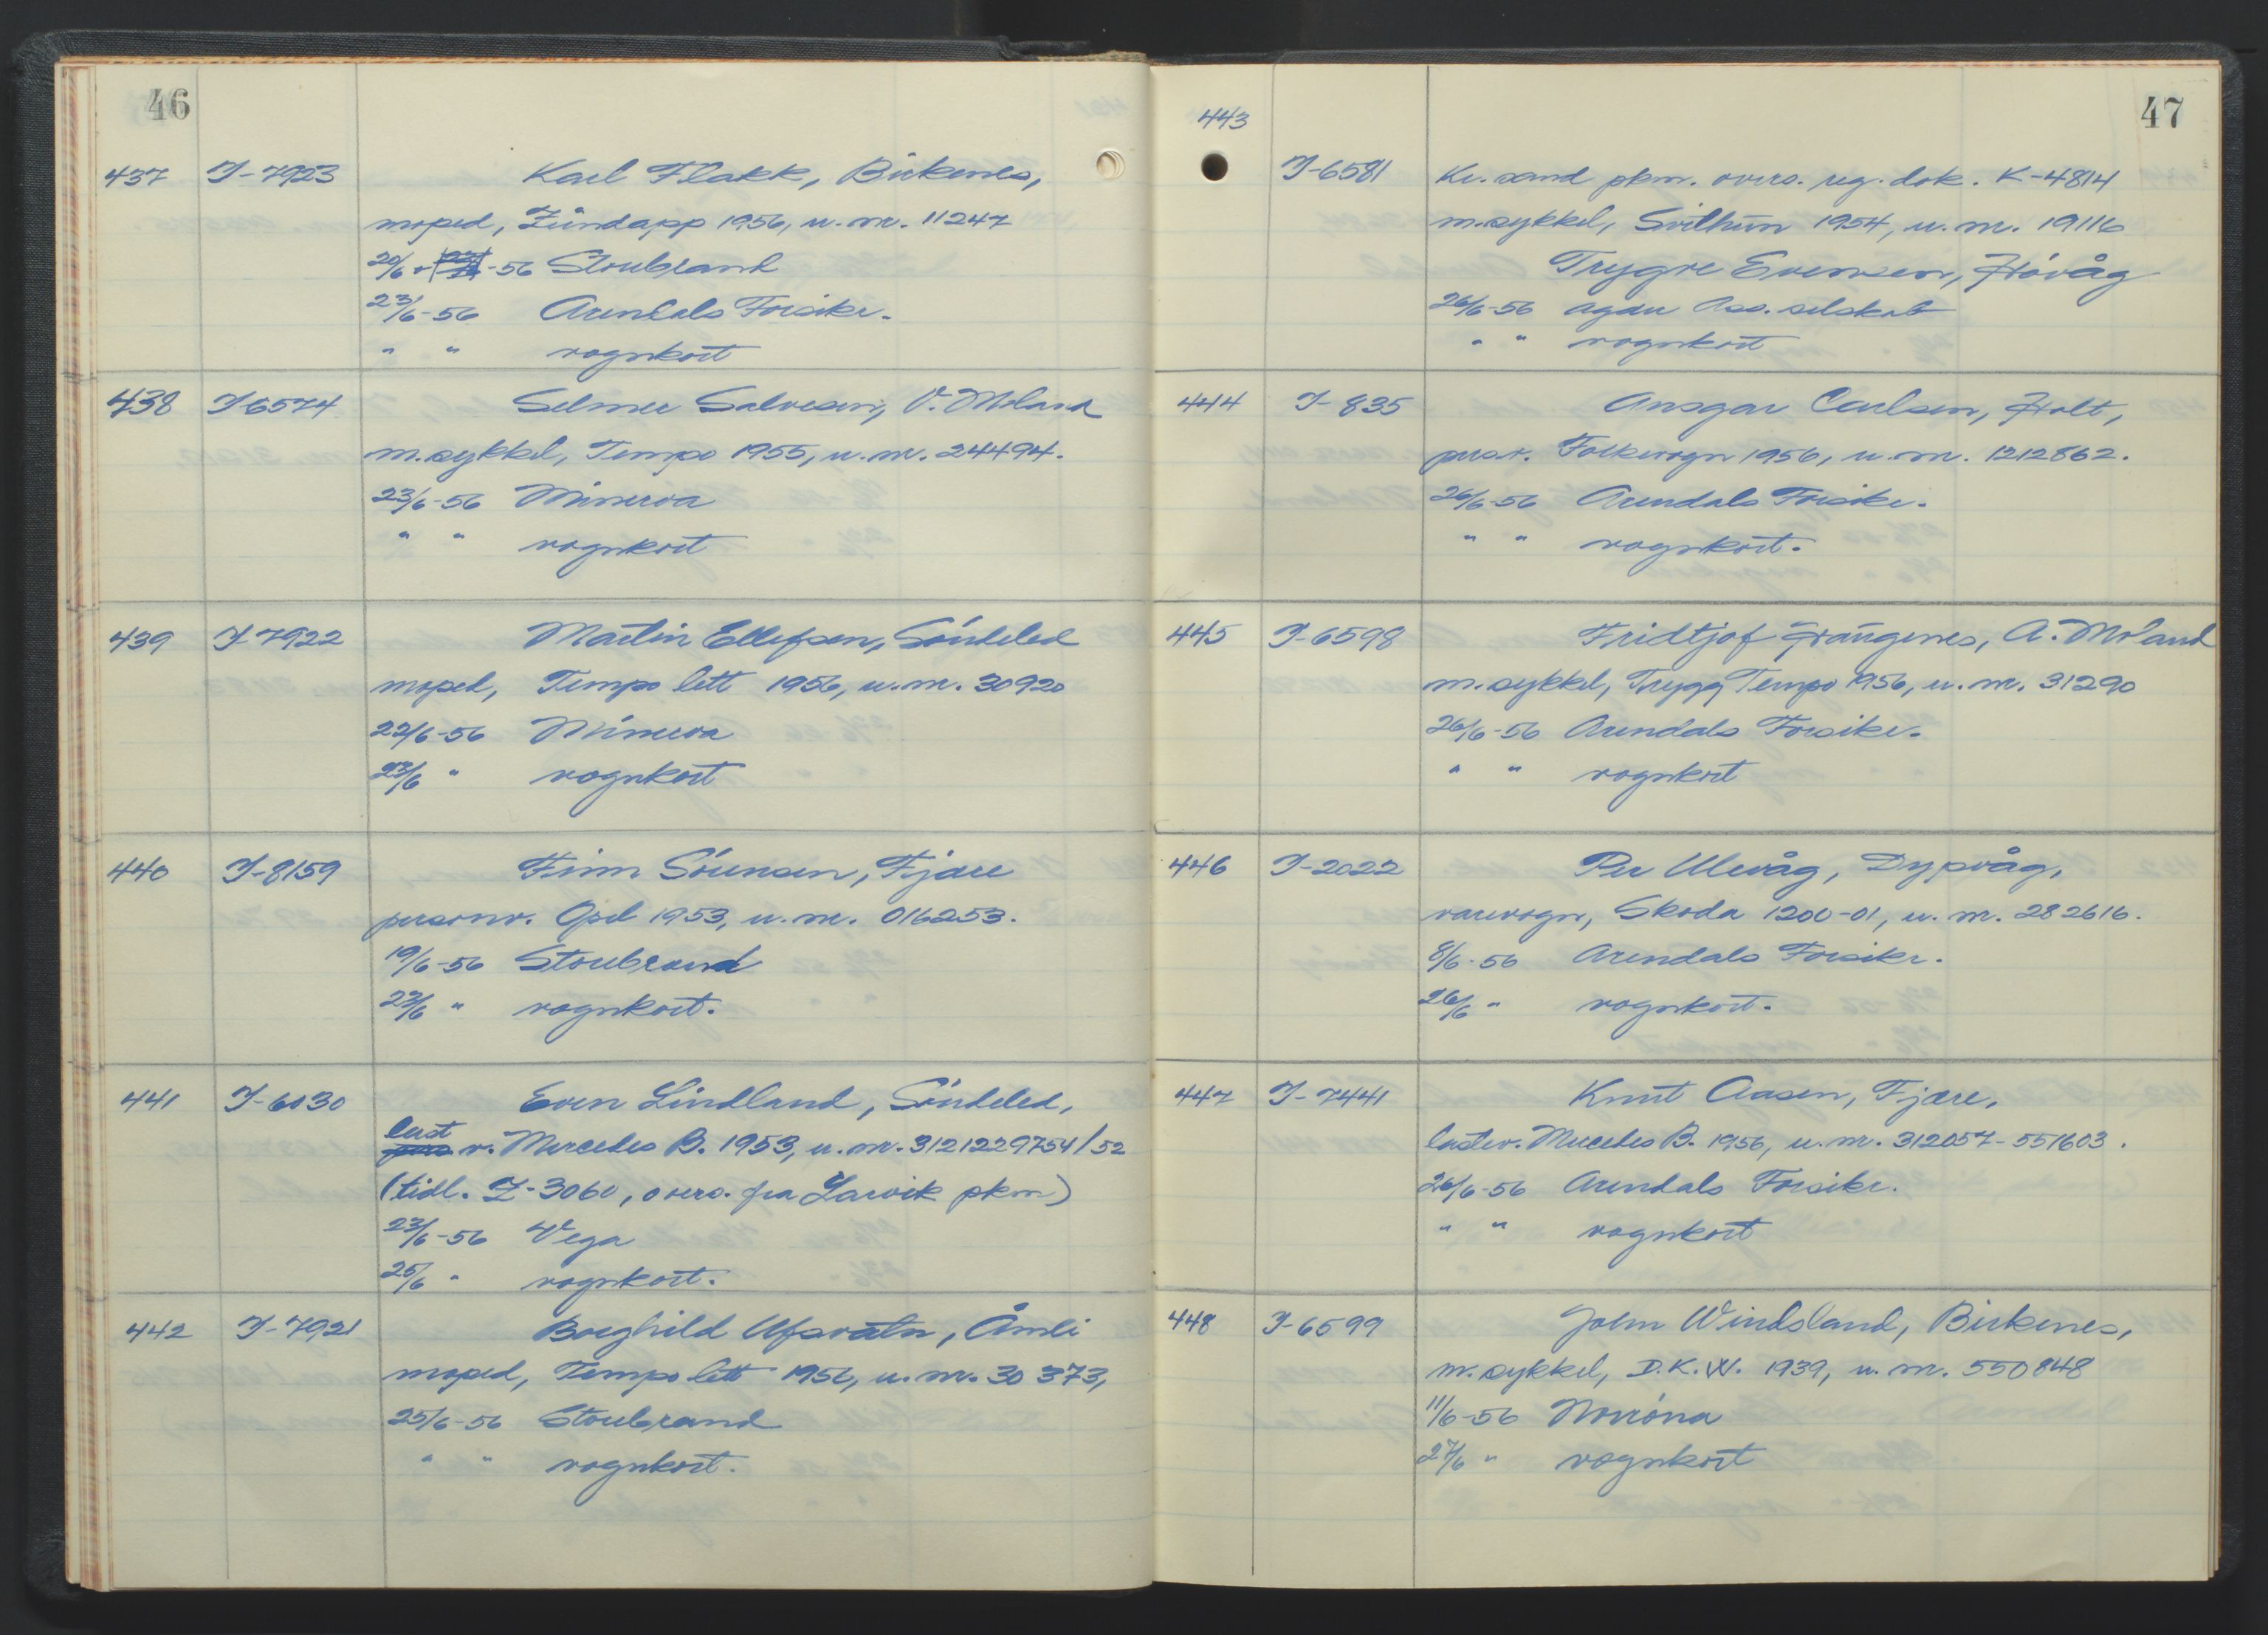 46
437 I-7923 Karl Flakk, Birkenes,
moped, Zündapp 1956, u.nr. 11247
20/6 -56 Storebrand
23/6-56 Arendals Forsikr.
" " vognkort
438 I-6574 Selmer Salvesen, V. Moland
m.sykkel, Tempo 1955, u.nr. 24494.
23/6-56 Minerva
" " vognkort
439 I-7922 Martin Ellefsen, Söndeled
moped, Tempo lett 1956, u.nr. 30920
22/6-56 Minerva
23/6 " vognkort
440 I-8159 Finn Sörensen, Fjære
personv. Opel 1953, u.nr. 016253.
19/6-56 Storebrand
23/6 " vognkort.
441 I-6030 Even Lindland, Söndeled,
last v. Mercedes B. 1953, u.nr. 3121229754/52
(tidl. Z-3060, overs. fra Larvik pkm)
23/6-56 Vega
25/6 " vognkort.
442 I-7921 Borghild Ufsvatn, Åmli
moped, Tempo lett 1956, u.nr. 30373,
25/6-56 Storebrand
" " vognkort.
47
443
I-6581 Kr.sand pkm. overs. reg. dok. K-4814
m.sykkel, Svithun 1954, u.nr. 19116
Trygve Evensen, Hövåg
26/6-56 Agder Ass. selskab
" " vognkort
444 I-835 Ansgar Carlsen, Holt,
persv. Folkevogn 1956, u.nr. 1212862.
26/6-56 Arendals Forsikr.
" " vognkort.
445 I-6598 Fridtjof Haugenes, A. Moland
m.sykkel, Trygg Tempo 1956, u.nr. 31290
26/6-56 Arendals Forsikr.
" " vognkort
446 I-2022 Per Ulevåg, Dypvåg,
varevogn, Skoda 1200-01, u.nr. 282616.
8/6-56 Arendals Forsikr.
26/6 " vognkort.
447 I-7441 Knut Aasen, Fjære,
lastev. Mercedes B. 1956, u.nr. 312057-551603.
26/6-56 Arendals Forsikr.
" " vognkort
448 I-6599 John Windsland, Birkenes,
m.sykkel, D.K.W. 1939, u.nr. 550848
11/6-56 Norröna
27/6 " vognkort